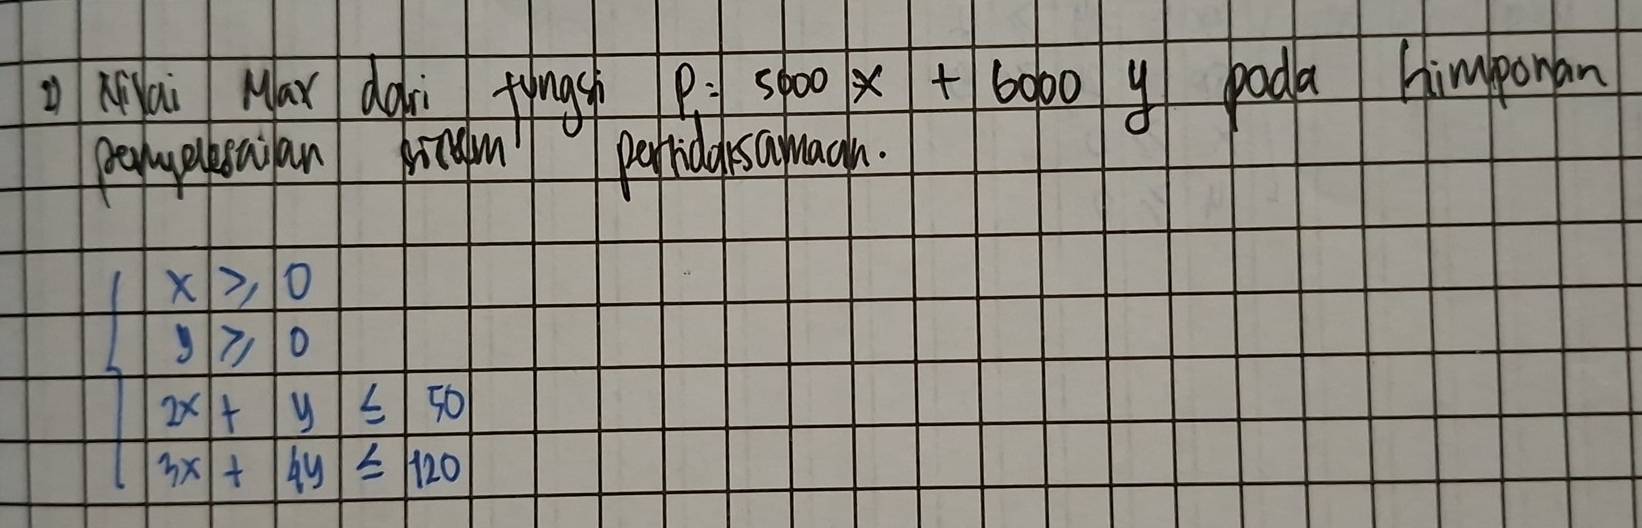 2) Nilai Max dari fungsi P = 5000 x + 6000 y pada himponan
penyelesaian sistem pertidaksamaan.
x ≥ 0
y ≥ 0
2x + y ≤ 50
3x + 4y ≤ 120